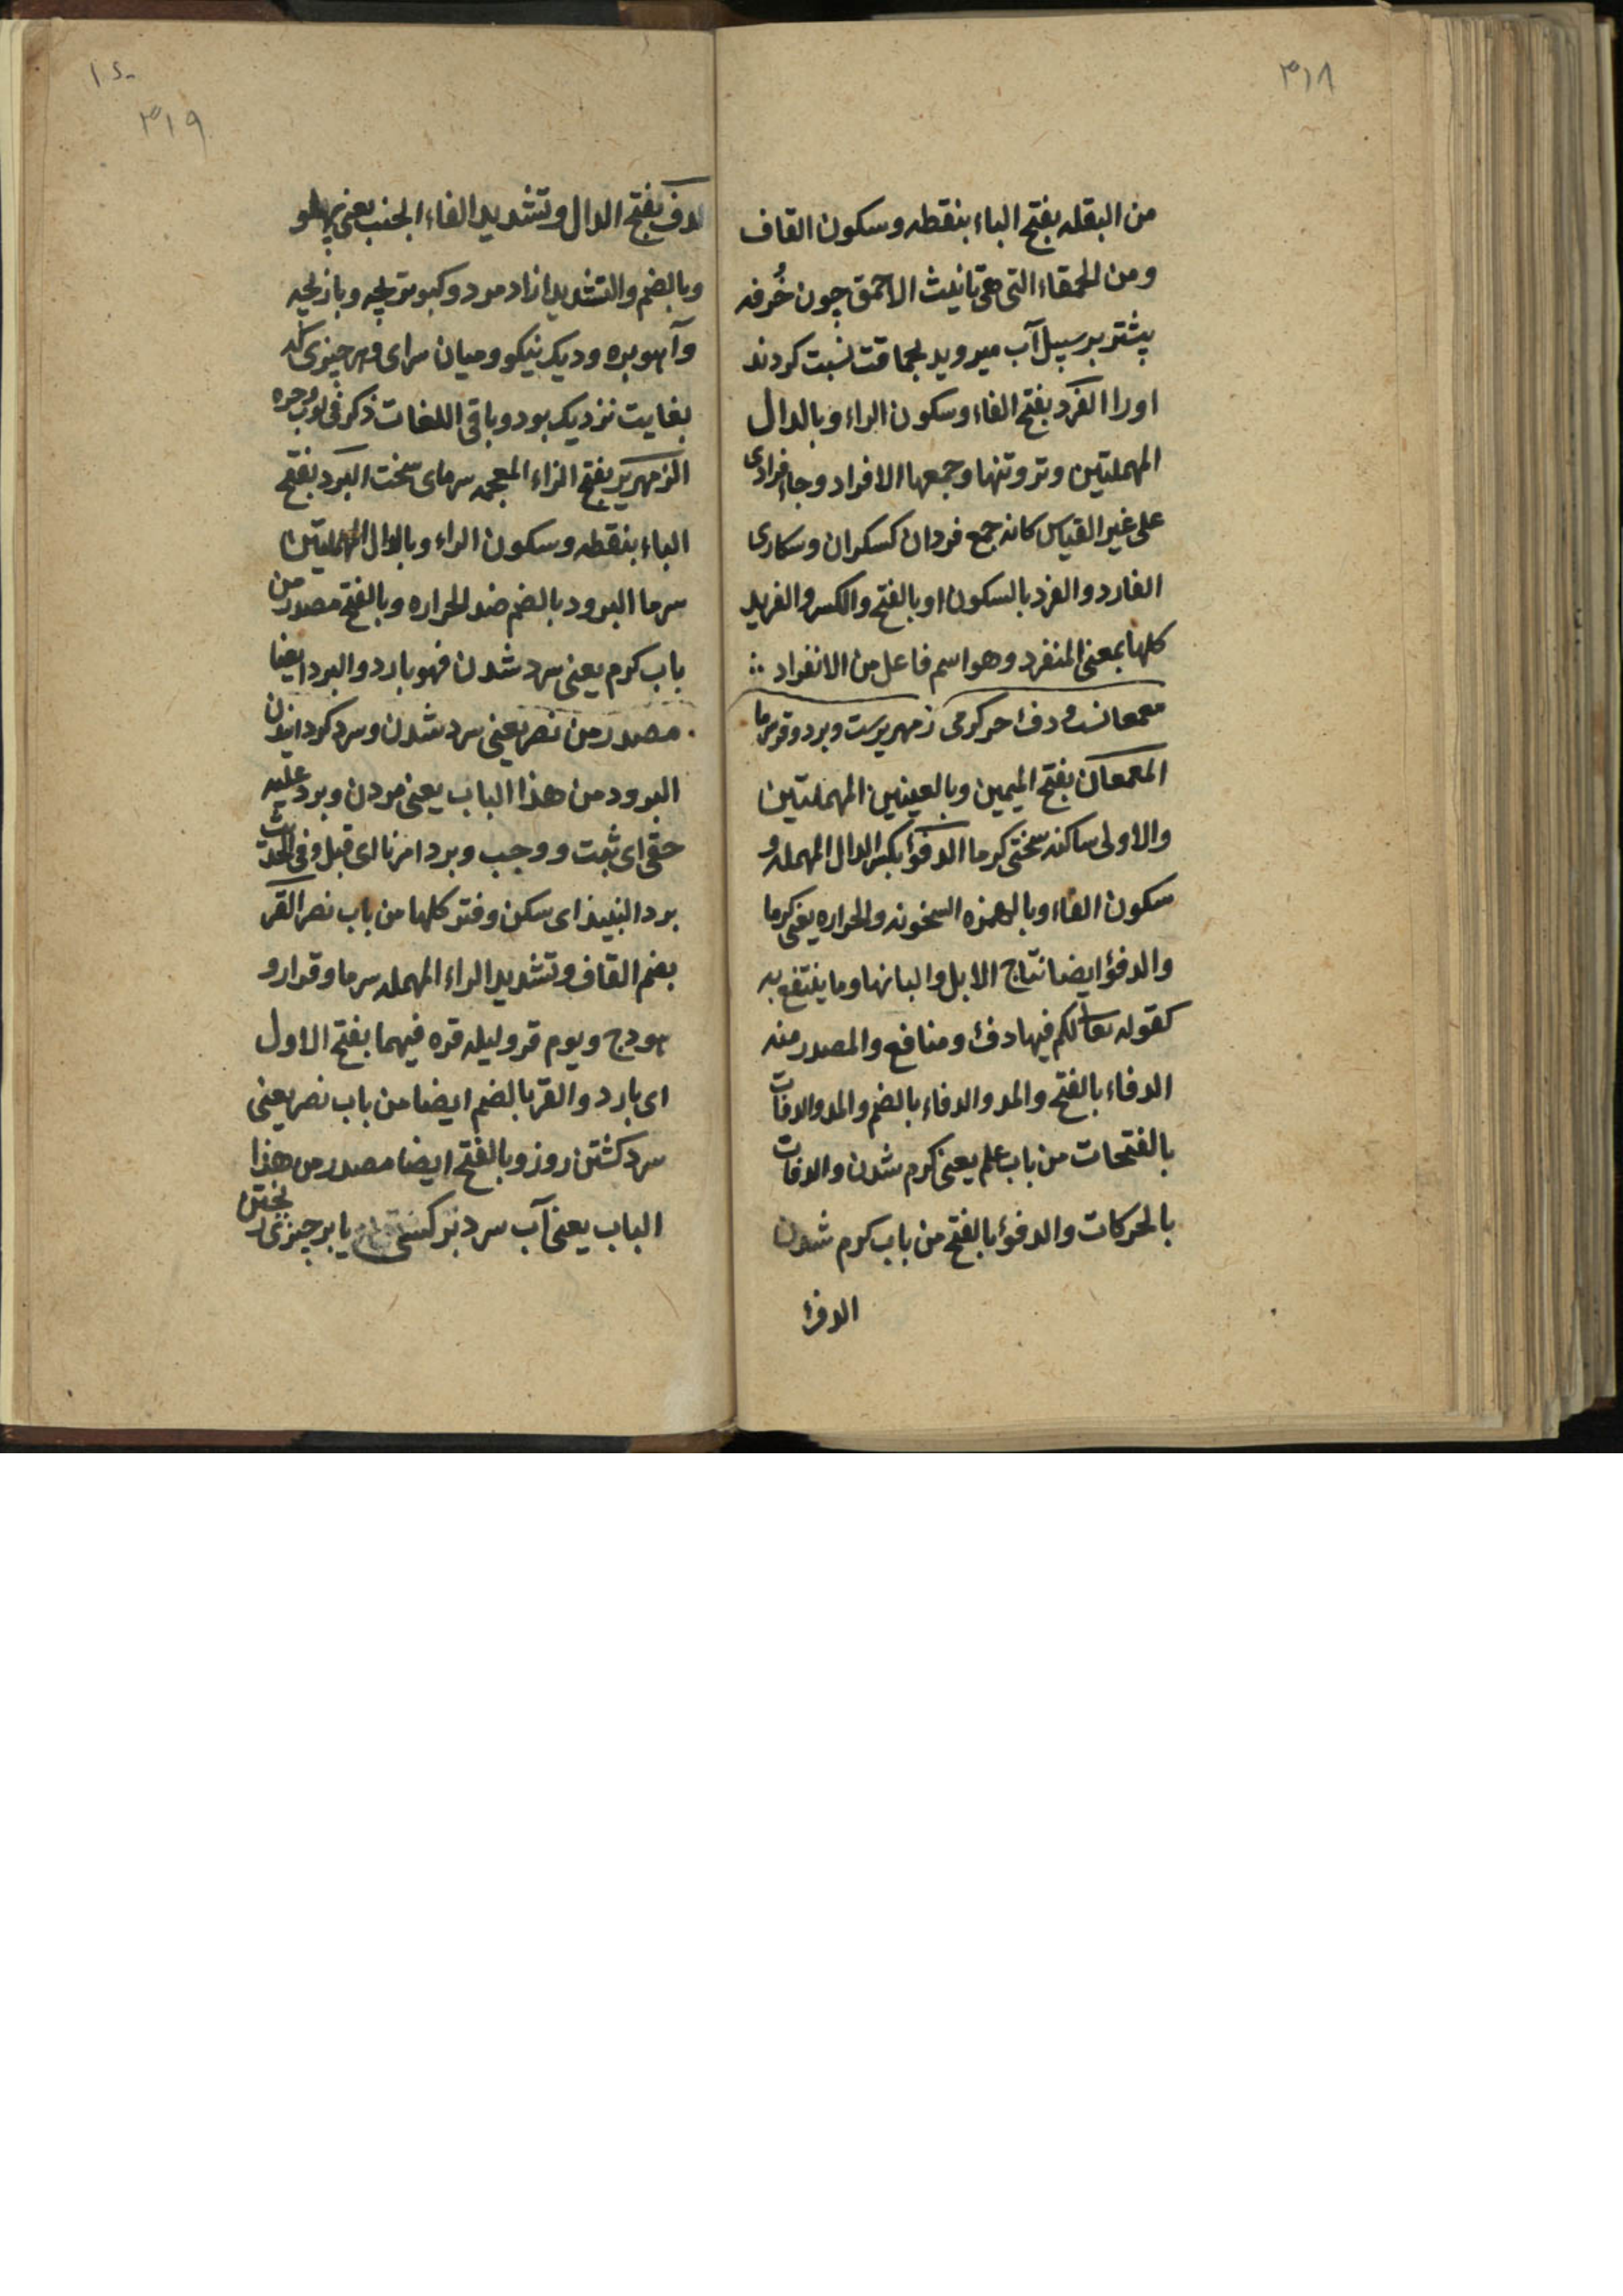 ۳۱۸
من البقله بفتح الباء بنقطه وسكون القاف
ومن الحمقاء التى هى تانيث الاحمق چون خُرفه
پيشتر بر سبيل آب ميرويد بحماقت نسبت كردند
اورا الفرد بفتح الفاء وسكون الراء وبالدال
المهملتين وتر وتنها وجمعها الافراد وجاء فرادى
على غير القياس كانه جمع فردان كسكران وسكارى
الفارد والفرد بالسكون او بالفتح والكسر والفريد
كلها بمعنى المنفرد وهو اسم فاعل من الانفراد ؞
معمعانست ودفء حر گرمى زمهريرست وبرد وقر سرما
المعمعان بفتح الميمين وبالعينين المهملتين
والاولى ساكنه سختى گرما الدفؤ بكسر الدال المهمله و
سكون الفاء وبالهمزه السخونه والحراره يعنى گرما
والدفؤ ايضا نتاج الابل والبانها وما ينتفع به
كقوله تعا لكم فيها دفء ومنافع والمصدر منه
الدفاء بالفتح والمد والدفاء بالضم والمد والدفات
بالفتحات من باب علم يعنى گرم شدن والدفات
بالحركات والدفؤ بالفتح من باب كرم شدن
الدفؤ
۱۶۰
۳۱۹
الدف بفتح الدال وتشديد الفاء الجنب يعنى پهلو
وبالضم والتشديد ازاد مرد وكبوتر بچه وباز بچه
وآهو بره وديك نيكو وميان سراى وهر چيزى كه
بغايت نزديك بود وباقى اللغات ذكر فى
الزمهرير بفتح الزاء المعجمه سرماى سخت البرد بفتح
الباء بنقطه وسكون الراء وبالدال المهملتين
سرما البرود بالضم ضد الحراره وبالفتح مصدر من
باب كرم يعنى سرد شدن فهو بارد والبرد ايضا
مصدر من نصر يعنى سرد شدن وسرد گردانيدن
البرود من هذا الباب يعنى مردن وبرد عليه
حقى اى ثبت ووجب وبرد امرنا اى قبل وفى الحديث
برد النبيذ اى سكن وفتر كلها من باب نصر القر
بضم القاف وتشديد الراء المهمله سرما وقرار و
هودج ويوم قر وليله قره فيهما بفتح الاول
اى بارد والقر بالضم ايضا من باب نصر يعنى
سرد گشتن روز وبالفتح ايضا مصدر من هذا
الباب يعنى آب سرد بر كسى يا بر چيزى ريختن